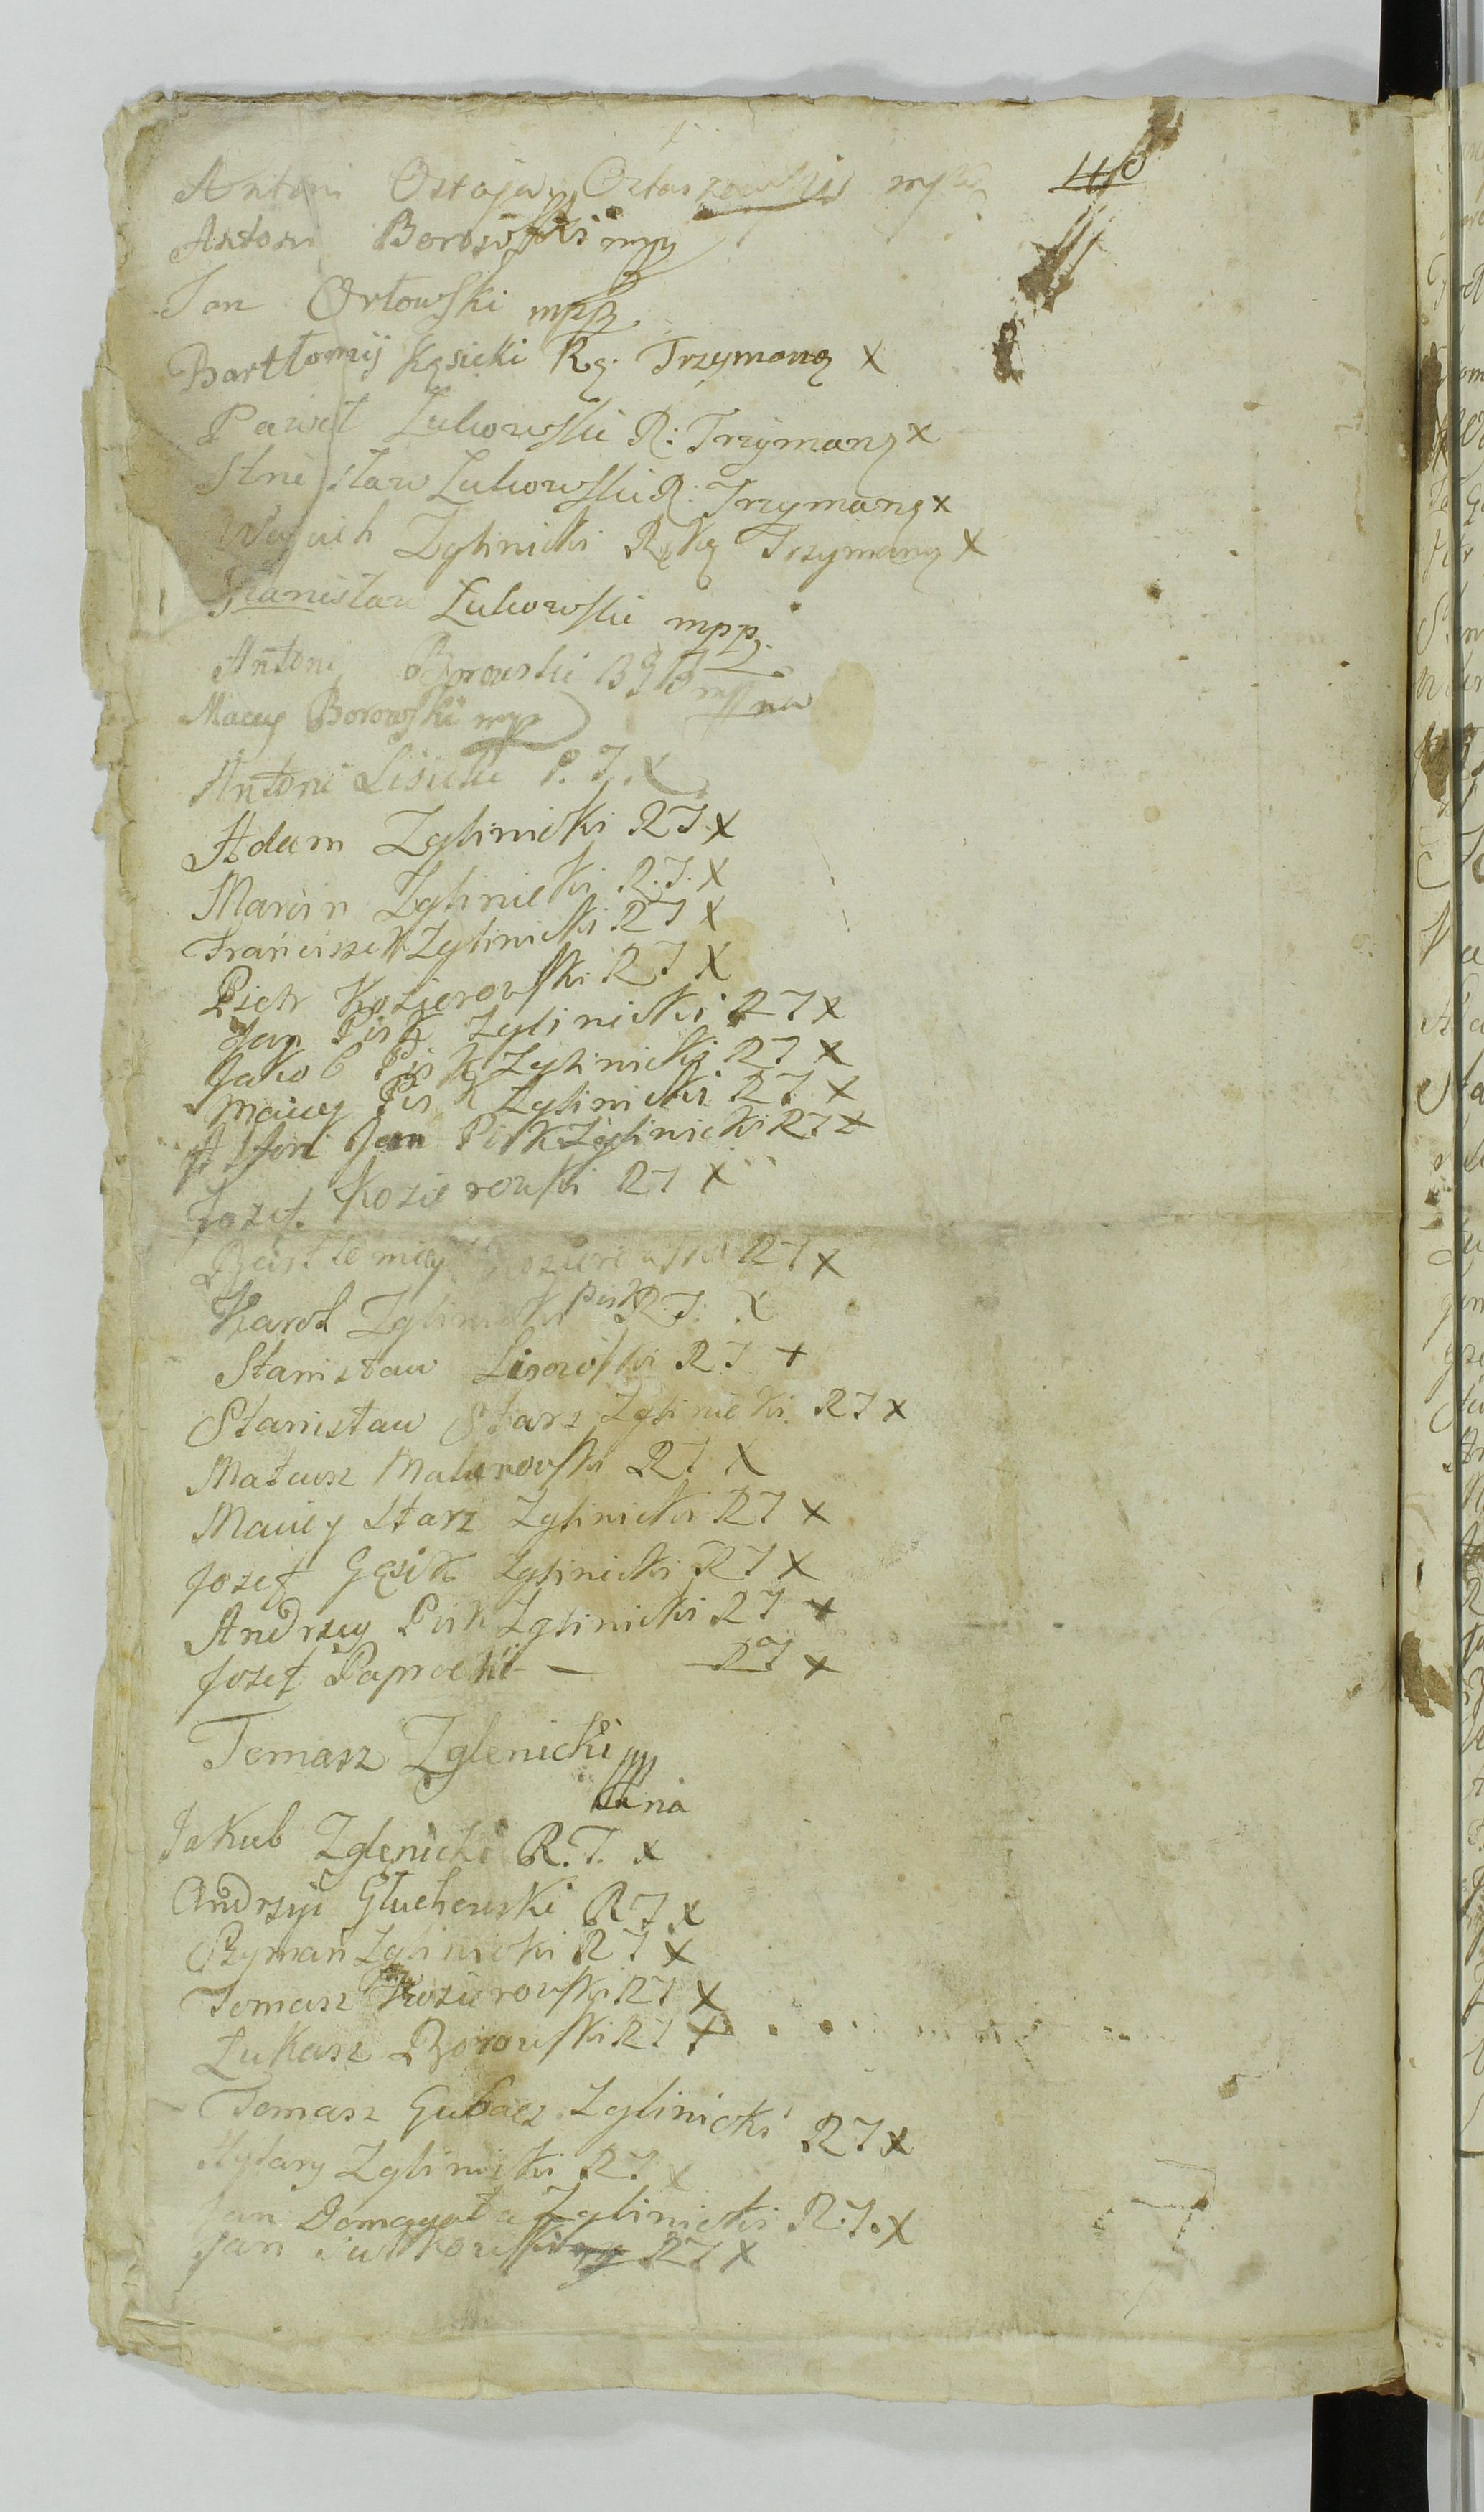 Antoni Ostoja Ostaszewski mp
Antoni Borowski mp
Jan Orłowski mpp
Bartłomij Kęsicki Rę. Trzymaną X
Paweł Żukowski R: Trzymaną x
Stnisław Żukowski R: Trzymaną x
Woyciech Zglinicki Ręką Trzymaną X
Stanisław Żukowski mpp
Antoni Borowski
Maciey Borowski mp
Antoni Lisicki R. T. X
Adam Zglinicki RT. X
Marcin Zglinicki R.T. X
Franciszek Zglinicki RT X
Piotr Kozierowski RT X
Jan Pisk Zglinicki RT X
Jakob Pisk Zglinicki RT X
Maciey Pisk Zglinicki RT X
Jan Pisk Zglinicki RT X
Jozef Kozierowski RT X
Bartlomiey RT X
Karol Zglinicki Pisk RT. X
Stanisław Lisowski RT +
Stanisław Starz Zglinicki RT X
Mateusz Makorowski RT X
Maciey Starz Zglinicki RT X
Jozef Gęsik Zglinicki RT X
Andrzey Pisk Zglinicki RT X
Jozef Paprocki — — RT X
Tomasz Zglenicki
Jakub Zglenicki R.T. x
Andrzyi Głuchowski RT x
Szyman Zglinicki RT X
Tomasz Kozierowski RT X
Łukasz Borowski RT X
Tomasz Gubacz Zglinicki RT X
Hylary Zglinicki RT x
Jan Domagała Zglinicki R.T. X
Jan RT X